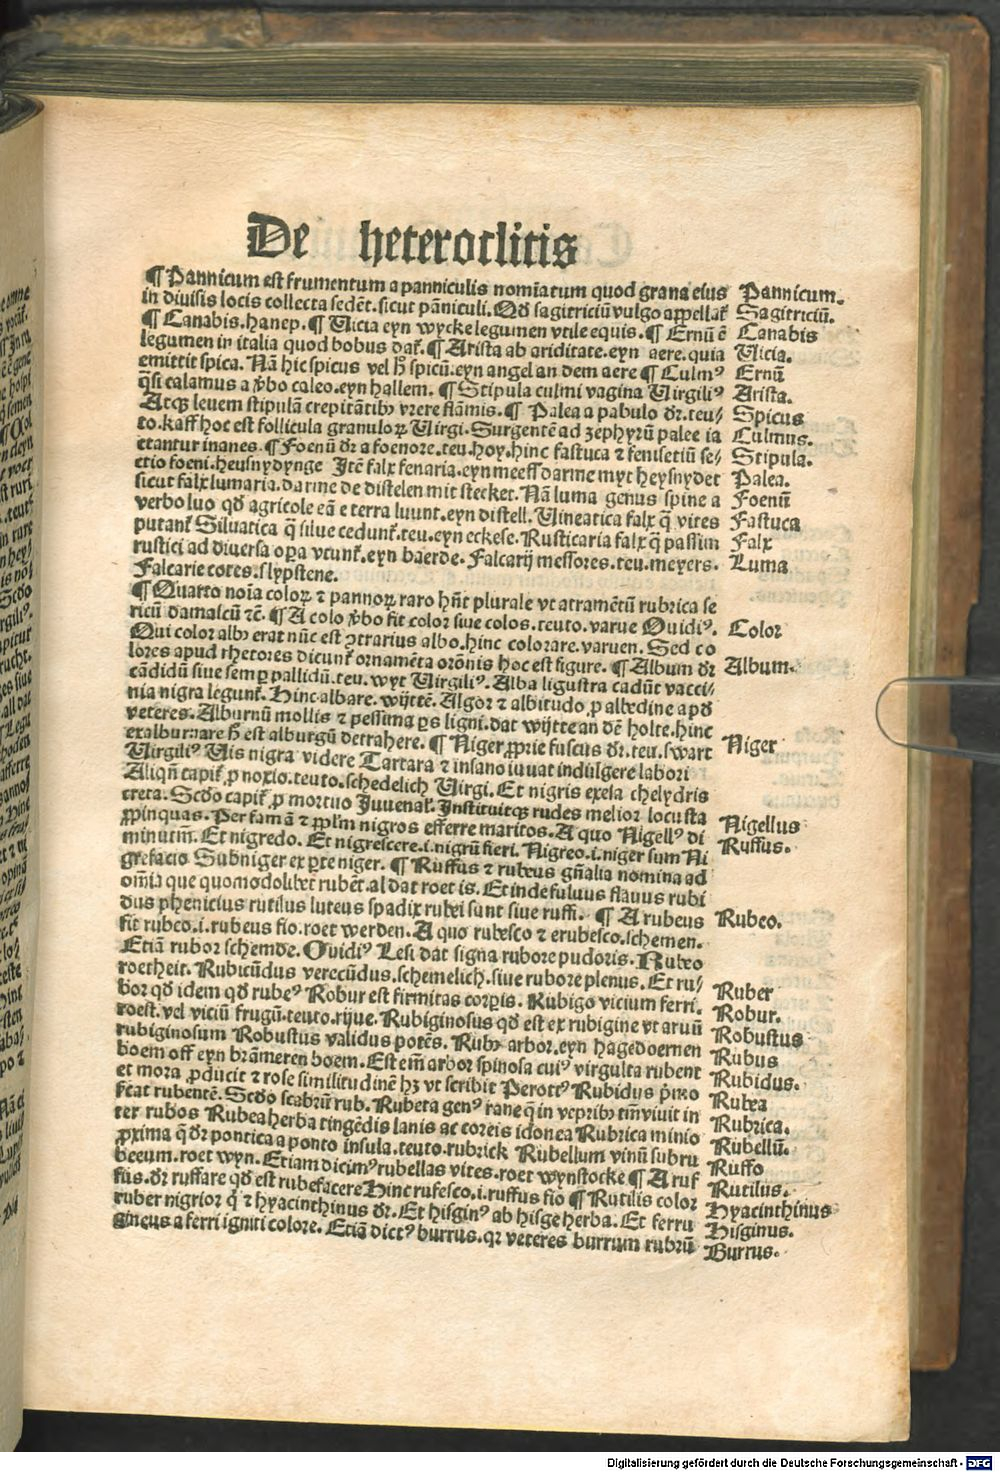 De heteroclitis
¶ Pannicum est frumentum a panniculis nomīatum quod grana eius
in diuisis locis collecta sedēt. sicut pāniculi. Qd̄ sagitriciū vulgo appellat̄
¶ Canabis. hanep. ¶ Uicia eyn wycke legumen vtile equis. ¶ Ernū ē
legumen in italia quod bobus dat̄. ¶ Arista ab ariditate. eyn aere. quia
emittit spica. Nā hic spicus vel h̄ spicū. eyn angel an dem aere ¶ Culmꝰ
q̄si calamus a v̓bo caleo. eyn hallem. ¶ Stipula culmi vagina Uirgiliꝰ
Atqꝫ leuem stipulā crepitātibꝫ vrere flāmis. ¶ Palea a pabulo dr̄. teu-
to. kaff hoc est follicula granuloꝝ Uirgi. Surgentē ad zephyrū palee ia
ctantur inanes. ¶ Foenū dr̄ a foenore. teu. hoy. hinc fastuca ⁊ fenisetiū se-
ctio foeni. heusnydynge Itē falx fenaria. eyn meeff darme myt heysnydet
sicut falx lumaria. darme de distelen mit stecket. Nā luma genus spine a
verbo luo qd̄ agricole eā e terra luunt. eyn distell. Uineatica falx q̄ vites
putant̄ Siluatica q̄ silue cedunt̄. teu. eyn eckese. Rusticaria falx q̄ passim
rustici ad diuersa oꝑa vtunt̄. eyn baerde. Falcarij messores. teu. meyers.
Falcarie cotes. slypstene.
¶ Quarto noīa coloꝝ ⁊ pannoꝝ raro hn̄t plurale vt atramētū rubrica se
ricū damascū ⁊c̄. ¶ A colo v̓bo fit color siue colos. teuto. varue Ouidiꝰ.
Qui color albꝰ erat nūc est ꝯtrarius albo. hinc colorare. varuen. Sed co
lores apud rhetores dicunt̄ ornamēta orōnis hoc est figure. ¶ Album dr̄
cādidū siue semꝑ pallidū. teu. wyt Uirgiliꝰ. Alba ligustra cadūt vacci-
nia nigra legunt̄. Hinc albare. wijttē. Algor ⁊ albitudo. ꝓ albedine apd̄
veteres. Alburnū mollis ⁊ pessima ꝑs ligni. dat wijtte an dē holte. hinc
exalburnare h̄ est alburgū detrahere. ¶ Niger ꝓprie fuscus dr̄. teu. swart
Uirgiliꝰ Uis nigra videre Tartara ⁊ insano iuuat indulgere labori
Aliqn̄ capit̄ ꝓ noxio. teuto. schedelich Uirgi. Et nigris exela chelydris
creta. Scd̄o capit̄ ꝓ mortuo Juuenal̄. Instituitqꝫ rudes melior locusta
ꝓpinquas. Per famā ⁊ ꝓpl̄m nigros efferre maritos. A quo Nigellꝰ di
minutiuū. Et nigredo. Et nigrescere. i. nigrū fieri. Nigreo. i. niger sum Ni
grefacio Subniger ex ꝑte niger. ¶ Ruffus ⁊ rubeus gn̄alia nomina ad
om̄ia que quomodolibet rubēt. al dat roet is. Et inde fuluus flauus rubi
dus phenicius rutilus luteus spadix rubei sunt siue ruffi. ¶ A rubeus
fit rubeo. i. rubeus fio. roet werden. A quo rubesco ⁊ erubesco. schemen.
Etiā rubor schemde. Ouidiꝰ Lesi dat signa rubore pudoris. Rubeo
roetheit. Rubicūdus verecūdus. schemelich. siue rubore plenus. Et ru-
bor qd̄ idem qd̄ rubeꝰ Robur est firmitas corꝑis. Rubigo vicium ferri.
roest. vel viciū frugū. teuto. rijue. Rubiginosus qd̄ est ex rubigine vt aruū
rubiginosum Robustus validus potēs. Rubꝰ arbor. eyn hagedoernen
boem off eyn brāmeren boem. Est em̄ arbor spinosa cuiꝰ virgulta rubent
et mora ꝓducit ⁊ rose similitudinē hꝫ vt scribit Perottꝰ Rubidus p̓mo
ficat rubentē. Scd̄o scabrū rub. Rubeta genꝰ rane q̄ in vepribꝰ tm̄ viuit in
ter rubos Rubea herba tingēdis lanis ac coreis idonea Rubrica minio
ꝓxima q̄ dr̄ pontica a ponto insula. teuto. rubrick Rubellum vinū subru
beeum. roet wyn. Etiam dicimꝰ rubellas vites. roet wynstocke ¶ A ruf
fus. dr̄ ruffare qd̄ est rubefacere Hinc rufesco. i. ruffus fio ¶ Rutilis color
ruber nigrior q̄ ⁊ hyacinthinus dr̄. Et hisginꝰ ab hisge herba. Et ferru
gineus a ferri igniti colore. Etiā dictꝰ burrus. qr veteres burrum rubrū
Pannicum.
Sagitriciū.
Canabis
Uicia.
Ernū
Arista.
Spicus
Culmus.
Stipula.
Palea.
Foenū
Fastuca
Falx
Luma
Color
Album.
Niger
Nigellus
Ruffus.
Rubeo.
Ruber
Robur.
Robustus
Rubus
Rubidus.
Rubea
Rubrica.
Rubellū.
Ruffo
Rutilus.
Hyacinthinus
Hisginus.
Burrus.
Digitalisierung gefördert durch die Deutsche Forschungsgemeinschaft - DFG